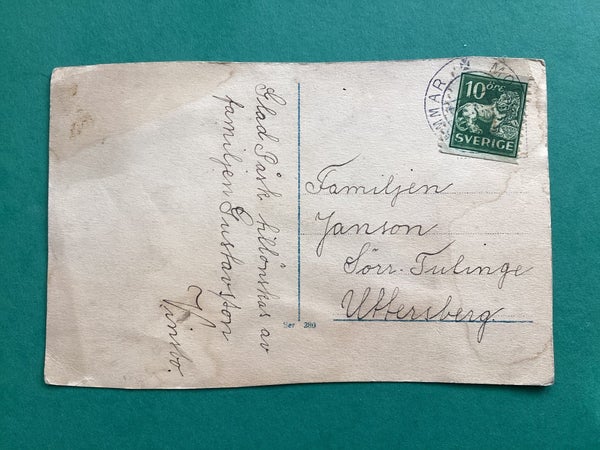 Glad Påsk tillönskas av
familjen Gustavsson
Vinsbo.
Familjen
Janson
Sörr. Tulinge
Uttersberg.
10 öre
SVERIGE
Ser 380